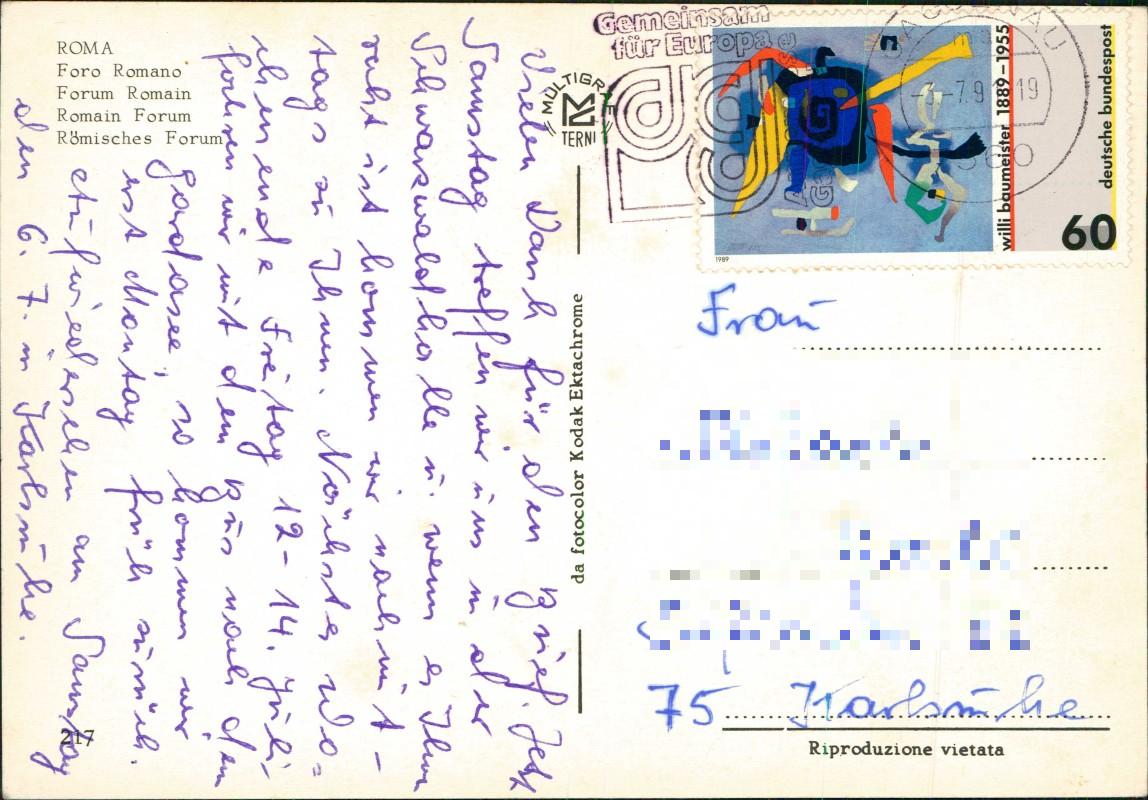 ROMA
Foro Romano
Forum Romain
Romain Forum
Römisches Forum
Vielen Dank für den Brief. Jetzt
Samstag treffen wir uns in der
Schwarzwaldhalle u. wenn es Ihnen
recht ist kommen wir nachmit-
tags zu Ihnen. Nächstes Wo=
chenende Freitag 12-14. Juli
fahren wir mit dem Bus nach dem
Gardasee, so kommen wir
erst Montag früh zurück.
Auf Wiedersehen am Samstag
den 6. 7. in Karlsruhe.
217
MULTIGRAF
TERNI
da fotocolor Kodak Ektachrome
Gemeinsam
für Europa
-7.9
19
1989
willi baumeister 1889-1955
deutsche bundespost
60
Frau
75 Karlsruhe
Riproduzione vietata